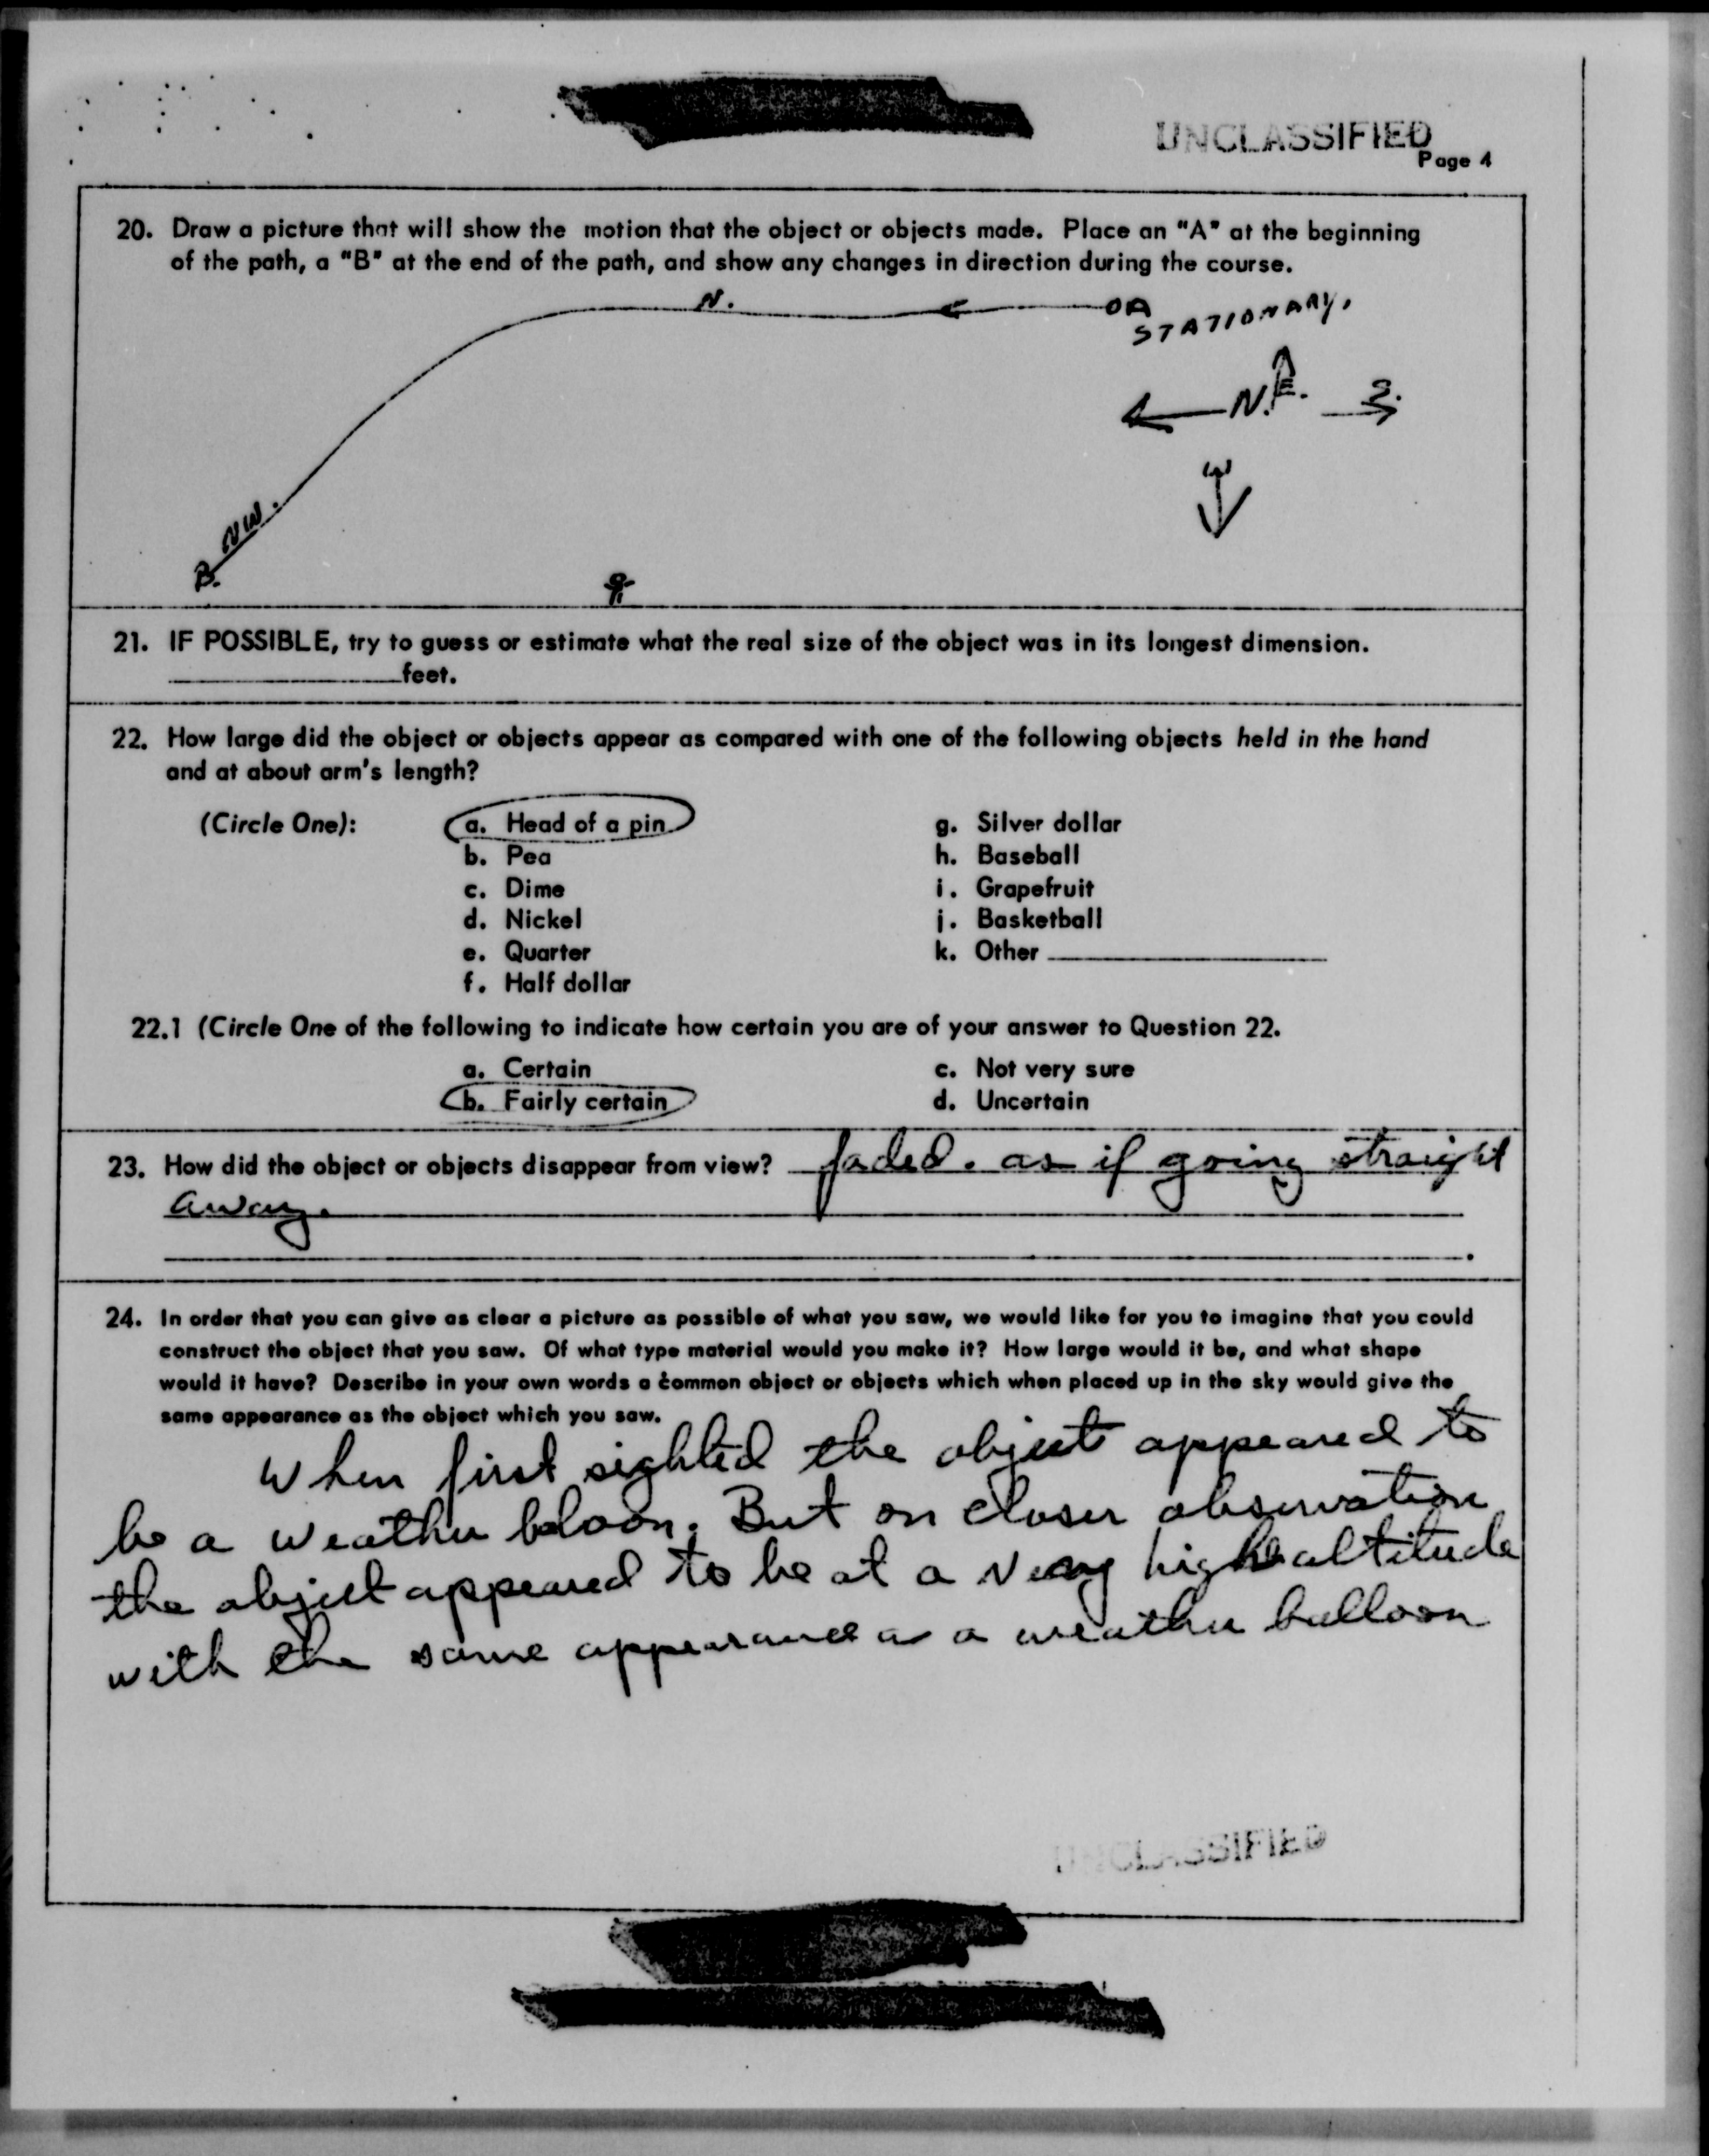 UNCLASSIFIED
Page 4
20. Draw a picture that will show the motion that the object or objects made. Place an "A" at the beginning
of the path, a "B" at the end of the path, and show any changes in direction during the course.
N.
A
STATIONARY.
E.
N. S.
W
NW.
B.
21. IF POSSIBLE, try to guess or estimate what the real size of the object was in its longest dimension.
feet.
22. How large did the object or objects appear as compared with one of the following objects held in the hand
and at about arm's length?
(Circle One): a. Head of a pin g. Silver dollar
b. Pea h. Baseball
c. Dime i. Grapefruit
d. Nickel j. Basketball
e. Quarter k. Other
f. Half dollar
22.1 (Circle One of the following to indicate how certain you are of your answer to Question 22.
a. Certain c. Not very sure
b. Fairly certain d. Uncertain
23. How did the object or objects disappear from view? faded. as if going straight
away.
24. In order that you can give as clear a picture as possible of what you saw, we would like for you to imagine that you could
construct the object that you saw. Of what type material would you make it? How large would it be, and what shape
would it have? Describe in your own words a common object or objects which when placed up in the sky would give the
same appearance as the object which you saw.
When first sighted the object appeared to
be a weather baloon. But on closer observation
the object appeared to be at a very high altitude
with the same appearance as a weather balloon
UNCLASSIFIED